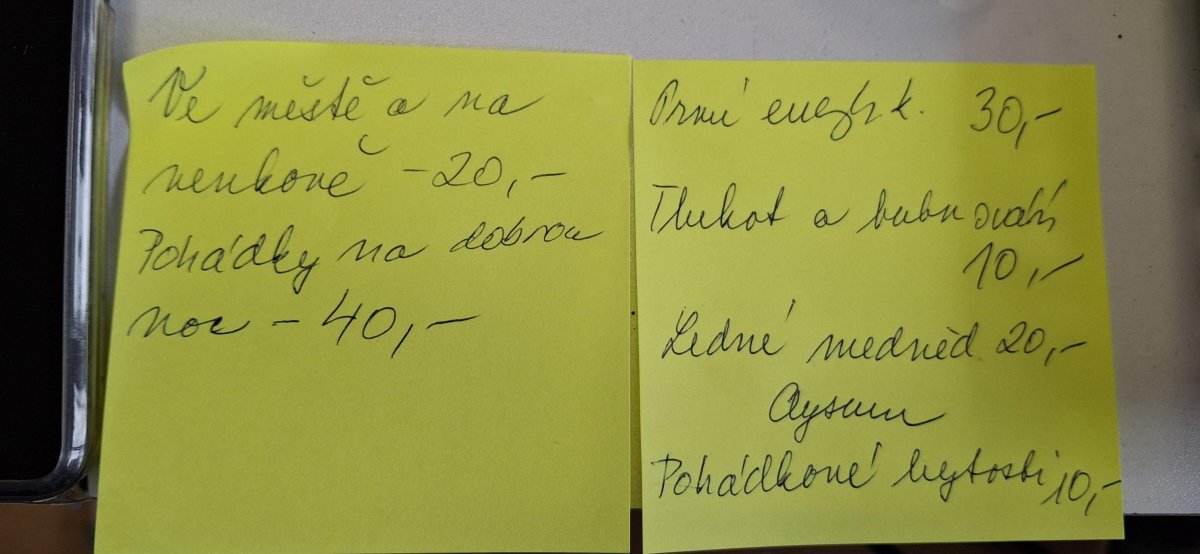 Ve městě a na
venkově - 20,-
Pohádky na dobrou
noc - 40,-
První encykl. 30,-
Tlukot a bubnování
10,-
Lední medvěd 20,-
Pohádkové bytosti 10,-